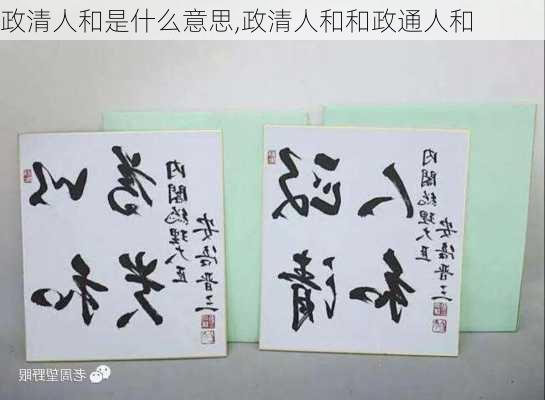 政清人和是什么意思,政清人和和政通人和
以和
為貴
内閣総理大臣
安倍晋三
政清
人和
内閣総理大臣
安倍晋三
老周望野眼